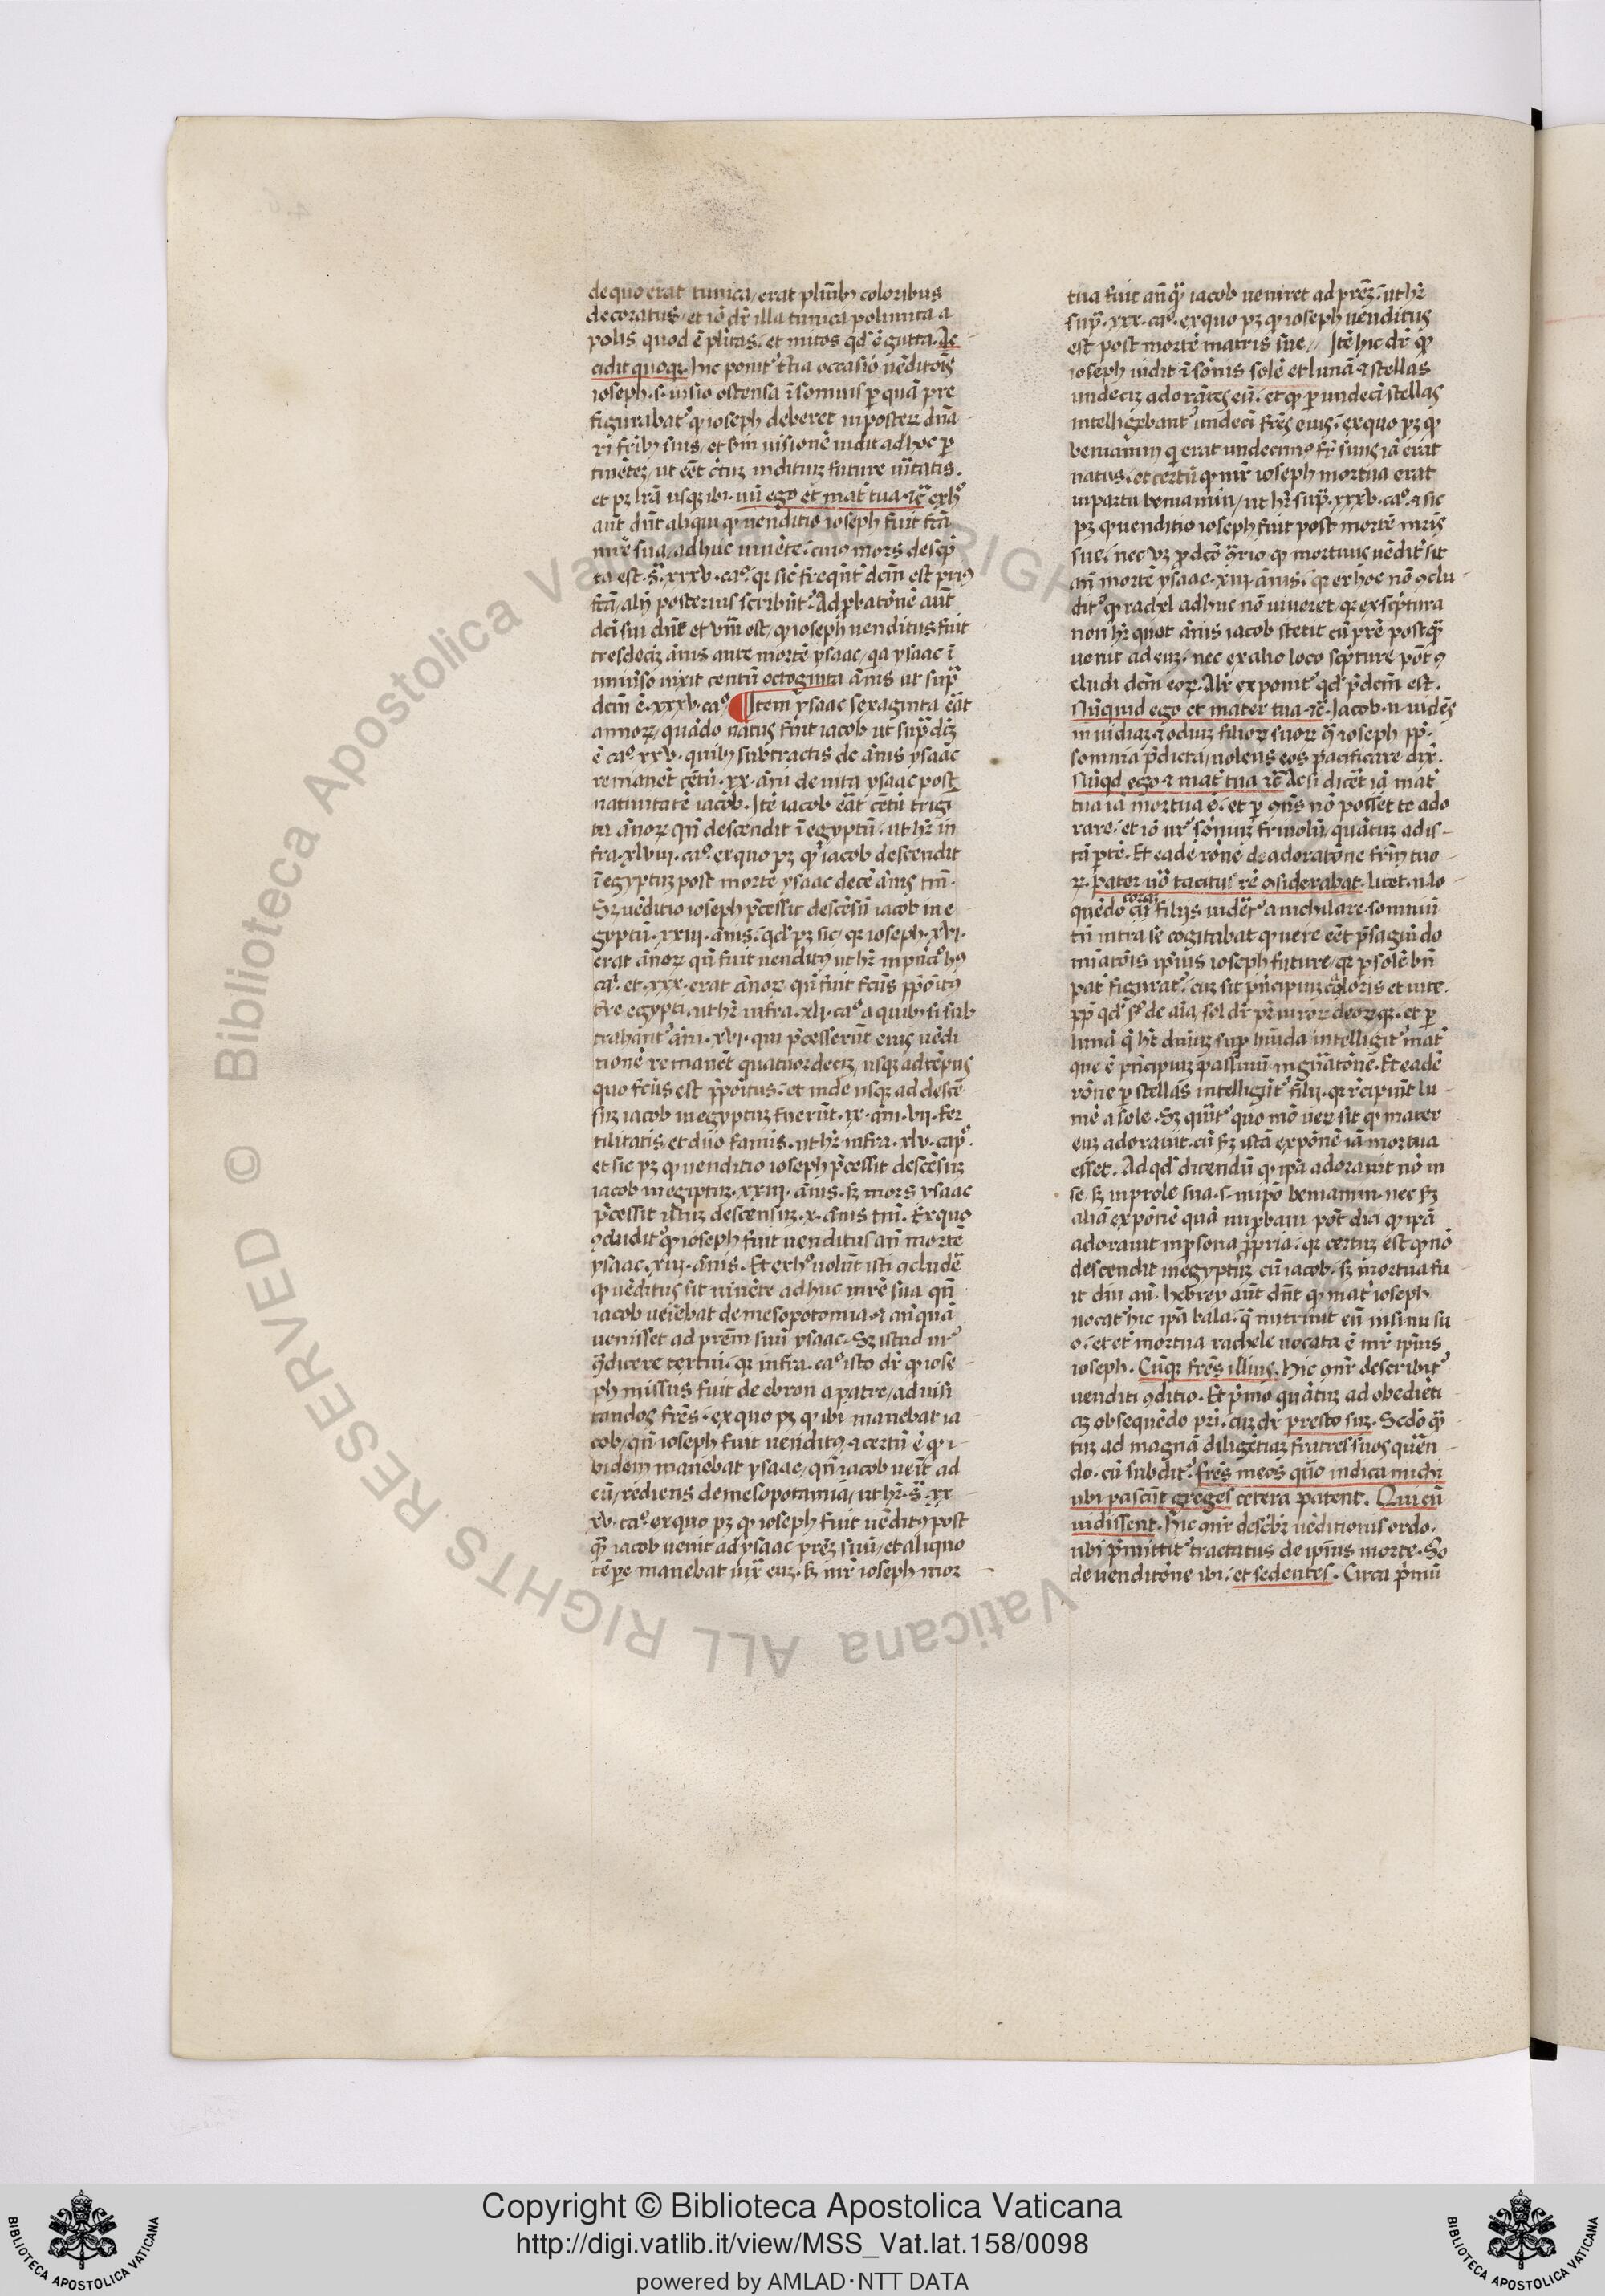 de quo erat tunica / erat plurib; coloribus
decoratus / et iō dr̄ illa tunica polimita a
polis quod ē pl̄itas. et mitos qd̓ ē gutta. Ac
cidit quoqꝫ. hic ponit᷑ t̄tia occasio uēditōis
ioseph .s. uisio ostensa ī somnis ꝑ quā pre
figurabat᷑ ꝙ ioseph deberet in posteꝝ dn̄a
ri fr̄ibꝫ suis / et bīn uisionē uidit ad hoc ꝑ
tinētē / ut eēt c̄tuꝫ indituꝫ future ūitatis.
et pꝫ lr̄a usqꝫ ibi. nū ego et mat̓ tua. ⁊c̄ ex hᵒ
aut̄ dn̄t aliqui ꝙ uenditio ioseph fuit fc̄ā
mr̄e sua / adhuc uiuēte. cuiꝰ mors desc̓p
ta est. sᵃ. xxxv. caᵒ. qꝛ sic̄ freq̄nt̓ dcm̄ est p̓riꝰ
fc̄ā / alij posterius scribūt᷑. Ad ꝓbatōnē aut̄
dc̄i sui dn̄t et vm̄ est / ꝙ ioseph uenditus fuit
tresdeciꝫ ānis ante mortē ysaac / qa ysaac ī
uniuso uixit centū octoginta ānis ut supᵃ
dcm̄ ē. xxxv. caᵒ ¶ Item ysaac sexaginta eāt
annoꝝ / quādo natus fuit iacob ut supᵃ dꝫ
ē caᵒ. xxv. quibꝫ subtractis de ānis ysaac
remanēt cētū. xx. āni de uita ysaac post
natiuitatē iacob. Itē iacob eāt cētū trigī
ta ānoꝝ qn̄ descendit ī egyptū. ut hr̄ in
fra. xlvii. caᵒ. ex quo pꝫ ꝙ iacob descendit
ī egyptuꝫ post mortē ysaac decē ānis tm̄.
Sꝫ uēditio ioseph p̄cessit descēsū iacob in e
gyptū. xxiii. ānis. qd̓ pꝫ sic / qꝛ ioseph. xvi.
erat ānoꝝ qn̄ fuit uenditꝰ ut hr̄ in pn̄cᵒ hꝰ
caⁱ. et. xxx. erat ānoꝝ qn̄ fuit fcūs ꝓpōitꝰ
t̄re egypti. ut hr̄ infra. xli. caᵒ a quibꝫ si sub
trahant᷑ āni. xvi. qui p̄cesserūt eius uēdi
tionē remanēt quatuordeciꝫ / usqꝫ ad tēpus
quo fcūs est p̄pōitus. et inde usqꝫ ad descē
suꝫ iacob in egyptuꝫ fuerūt. ix. āni. vij. fer
tilitatis. et duo famis. ut hr̄ infra. xlv. capᵒ.
et sic pꝫ ꝙ uenditio ioseph p̄cessit descēsuꝫ
iacob in egiptuꝫ. xxiii. ānis. sꝫ mors ysaac
p̄cessit descensuꝫ. x. ānis tm̄. Ex quo
ꝯcludit᷑ ꝙ ioseph fuit uenditus an̄ mortē
ysaac. xiij. ānis. Et ex hᵒ uolūt isti ꝯcludē
ꝙ uēditus sit uiuēte adhuc mr̄e sua qn̄
iacob ueniebat de mesopotomia. ⁊ an̄quā
uenisset ad prēm suū ysaac. Sꝫ istud ur᷑
ꝯ̄dicere textui. qꝛ infra. caᵒ isto dr̄ ꝙ iose
ph missus fuit de ebron a patre / ad uisi
tandos frēs. ex quo pꝫ ꝙ ibi manebat ia
cob / qn̄ ioseph fuit uenditꝰ. ⁊ certū ē ꝙ i
bidem manebat ysaac / qn̄ iacob ueīt ad
eū / rediens de mesopotamia / ut hr̄. sᵃ. xx
xv. caᵒ. ex quo pꝫ ꝙ ioseph fuit uēditꝰ post
qᵃꝫ iacob uenit ad ysaac prēꝫ suū / et aliquo
tēpe manebat iux̄ euꝫ. sꝫ mr̄ ioseph mor
tua fuit an̄qᵃꝫ iacob ueniret ad prēꝫ. ut hr̄
supᵃ. xxx. caᵒ. ex quo pꝫ ꝙ ioseph uenditus
est post mortē matris sue // Itē hic dr̄ ꝙ
ioseph uidit ī sōnis solē et lunā ⁊ stellas
undeciꝫ adorātes eū. et ꝙ ꝑ undeci stellas
intelligebant᷑ undeci frēs eius. ex quo pꝫ ꝙ
beniamin q̓ erat undecimꝰ fr̄ suus iā erat
natus. et certū ꝙ mr̄ ioseph mortua erat
in partu beniamin / ut hr̄ supᵃ. xxxv. caᵒ. ⁊ sic
pꝫ ꝙ uenditio ioseph fuit post mortē mr̄is
sue. nec uꝫ ꝓ dcō ꝯ̄rio ꝙ mortuus uēdit᷑ sit
an̄ mortē ysaac. xiii. ānis. qꝛ ex hoc nō ꝯclu
dit᷑ ꝙ rachel adhuc nō uiueret / qꝛ ex sc̓ptura
non hr̄ quot ānis iacob stetit cū prē postqᵃꝫ
uenit ad euꝫ. nec ex alio loco sc̓pture pōt ꝯ
cludi dcm̄ eoꝝ. Alr̄ exponit᷑ qd̓ p̄dcm̄ est.
Nūquid ego et mater tua. ⁊c̄. Iacob. n. uidēs
inuidiaꝫ. ⁊ odiuꝫ filioꝝ suoꝝ ꝯ̄ ioseph ꝓp̄.
somnia p̄dicta / uolens eos pacificare. dix̄.
Nūqd̓ ego. ⁊ mat̓ tua ⁊c̄ Ac si dicēt iā mat̓
tua iā mortua ē. et ꝑ ꝯn̄s nō posset te ado
rare. et iō ur᷑ sōniuꝫ friuolū / quātuꝫ ad is
tā ꝑtē. Et eadē rōne de adoratōne fr̄m tuo
ꝝ. pater uō tacitus rē ꝯsiderabat. licet. n. lo
quēdo coram filijs uidēt᷑ anichilare somniū
tn̄ intra se cogitabat ꝙ uere eēt p̄sagiū do
miatōis ip̄ius ioseph future / qꝛ ꝑ solē bn̄
pat̓ figurat᷑. cuꝫ sit pn̄cipiuꝫ caloris et uite.
ꝓp̄ qd̓ sᵒ de aīa. sol dr̄ pr̄ uiroꝝ deoꝝqꝫ. et ꝑ
lunā q̓ hꝫ dn̄iuꝫ sup̄ hūida intelligit᷑ mat̓
que ē pn̄cipiuꝫ passiuū in gn̄atōne. Et eadē
rōne ꝑ stellas intelligūt᷑ filij. qꝛ recipiūt lu
mē a sole. Sꝫ querit᷑ quo mō ueꝝ sit ꝙ mater
euꝫ adorauit. cū sꝫ istā expōnē iā mortua
esset. Ad qd̓ dicendū ꝙ ip̄a adorauit nō in
se / sꝫ in prole sua .s. in ip̄o beniamin. nec sꝫ
aliā expōnē quā imꝓbaui pōt dici ꝙ ip̄ā
adorauit in ꝑsona ꝓpria. qꝛ certuꝫ est ꝙ nō
descendit in egyptuꝫ cū iacob. sꝫ mortua fu
it diu an̄. hebrey aut̄ dn̄t ꝙ mat̓ ioseph
uocat᷑ hic ip̄a bala. q̄ nutriuit eū in sinu su
o. et et̄ mortua rachele uocata ē mr̄ ip̄ius
ioseph. Cūqꝫ frēs illius. Hic ꝯnr̄ describit᷑
uenditi ꝯditio. Et p̄mo quātuꝫ ad obedieti
aꝫ obsequēdo pri. cuꝫ dr̄ presto suꝫ. Scdō qᵃ
tuꝫ ad magnā diligētiaꝫ fratres suos querē
do. cū subdit᷑. frēs meos quo indica michi
ubi pascūt greges cetera patent. Qui cū
uidissent. Hic ꝯnr̄ desc̓bꝫ uēditionis ordo.
ubi p̄mittit᷑ tractatus de ip̄ius morte. So
de uenditōne ibi. et sedentes. Circa p̄mū
Copyright © Biblioteca Apostolica Vaticana
http://digi.vatlib.it/view/MSS_Vat.lat.158/0098
powered by AMLAD·NTT DATA
BIBLIOTECA APOSTOLICA VATICANA
BIBLIOTECA APOSTOLICA VATICANA
Biblioteca Apostolica Vaticana ALL RIGHTS RESERVED ©